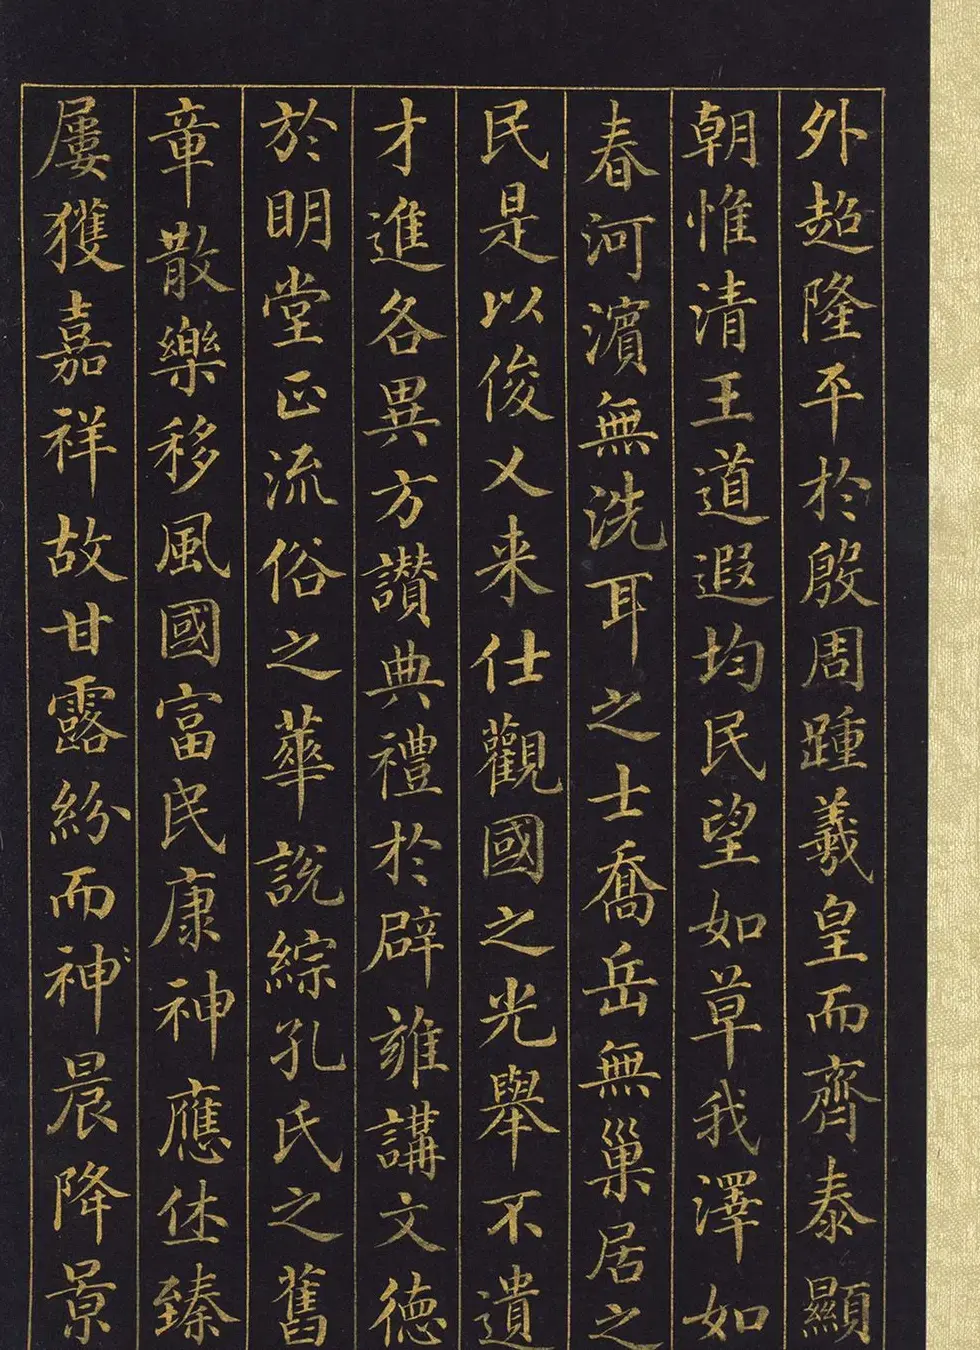 外超隆平於殷周踵羲皇而齊泰顯
朝惟清王道遐均民望如草我澤如
春河濱無洗耳之士喬岳無巢居之
民是以俊乂来仕觀國之光舉不遺
才進各異方讃典禮於辟雍講文德
於明堂正流俗之華說綜孔氏之舊
章散樂移風國富民康神應休臻
屢獲嘉祥故甘露紛而神晨降景